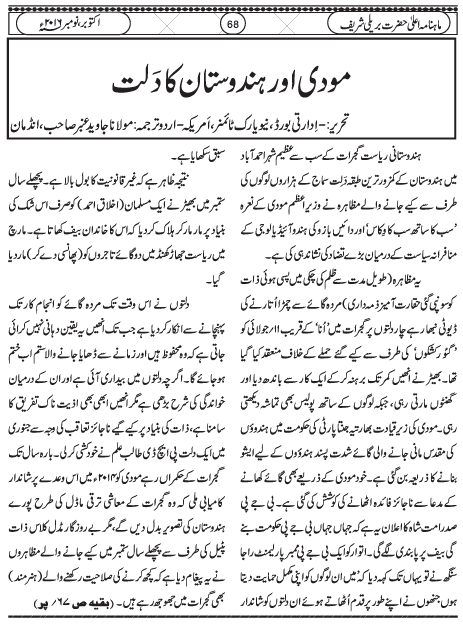 ماہنامہ اعلیٰ حضرت بریلی شریف
68
اکتوبر، نومبر ۲۰۱۶ء
مودی اور ہندوستان کا دَلت
تحریر:- اِدارتی بورڈ، نیو یارک ٹائمنر، اَمریکہ - اردو ترجمہ: مولانا جاوید عنبر صاحب، انڈمان
ہندوستانی ریاست گجرات کے سب سے عظیم شہر احمد آباد
میں ہندوستان کے کمزور ترین طبقہ دَلت سماج کے ہزاروں لوگوں کی
طرف سے کیے جانے والے مظاہرہ نے وزیرِ اعظم مودی کے نعرہ
'سب کا ساتھ سب کا وِکاس' اور دائیں بازو کی ہندو آئیڈیالوجی کے
منافرانہ سیاست کے درمیان بڑے تضاد کی نشاندہی کی ہے۔
یہ مظاہرہ (طویل مدت سے ظلم کی چکی میں پسی ہوئی ذات
کو سونپی گئی حقارت آمیز ذمہ داری) مردہ گائے سے چمڑا اُتارنے کی
ڈیوٹی نبھا رہے چار دلتوں پر گجرات میں 'اُنا' کے قریب ۱۱ جولائی کو
'گئو رکشکوں' کی طرف سے کیے گئے حملے کے خلاف منعقد کیا گیا
تھا۔ بھیڑ نے انھیں کمر تک برہنہ کر کے ایک کار سے باندھ دیا اور
گھنٹوں مارتی رہی، جبکہ لوگوں کے ساتھ پولیس بھی تماشہ دیکھتی
رہی۔ مودی کی زیرِ قیادت بھارتیہ جنتا پارٹی کی حکومت میں ہندوؤں
کی مقدس مانی جانے والی گائے شدت پسند ہندوؤں کے لیے ایشو
بنانے کا ذریعہ بن گئی ہے۔ خود مودی کے ذریعے بھی گائے کھانے
کے مدعا سے ناجائز فائدہ اٹھانے کی کوشش کی گئی ہے۔ بی جے پی
صدر امت شاہ کا اعلان یہ ہے کہ جہاں جہاں بی جے پی حکومت بنے
گی بیف پر پابندی لگے گی۔ اتوار کو ایک بی جے پی ممبر پارلیمنٹ راجا
سنگھ نے تو یہاں تک کہہ دیا کہ 'میں ان لوگوں کو اپنی مکمل حمایت دیتا
ہوں جنھوں نے اپنے طور پر قدم اُٹھاتے ہوئے ان دلتوں کو شاندار
سبق سکھایا ہے۔
نتیجہ ظاہر ہے کہ غیر قانونیت کا بول بالا ہے۔ پچھلے سال
ستمبر میں بھیڑ نے ایک مسلمان (اخلاق احمد) کو صرف اس شک کی
بنیاد پر مار مار کر ہلاک کر دیا کہ اس کا خاندان بیف کھاتا ہے۔ مارچ
میں ریاست جھارکھنڈ میں دو گائے تاجروں کو (پھانسی دے کر) مار دیا
گیا۔
دلتوں نے اس وقت تک مردہ گائے کو انجام کار تک
پہنچانے سے انکار کر دیا ہے جب تک انھیں یہ یقین دہانی نہیں کرائی
جاتی ہے کہ وہ محفوظ ہیں اور زمانے سے ڈھایا جانے والا ستم اب ختم
ہو جائے گا۔ اگرچہ دلتوں میں بیداری آئی ہے اور ان کے درمیان
خواندگی کی شرح بڑھی ہے مگر انھیں ابھی بھی اذیت ناک تفریق کا
سامنا ہے، ذات کی بنیاد پر کیے گیے ناجائز تعاقب کی وجہ سے جنوری
میں ایک دلت پی ایچ ڈی طالب علم نے خودکشی کر لی۔ بارہ سال تک
گجرات کے حکمراں رہے مودی کو ۲۰۱۴ء میں اس وعدے پر شاندار
کامیابی ملی کہ وہ گجرات کے معاشی ترقی ماڈل کی طرح پورے
ہندوستان کی تصویر بدل دیں گے، مگر بے روزگار مڈل کلاس ذات
پٹیل کی طرف سے پچھلے سال ستمبر میں کیے جانے والے مظاہروں
نے یہ پیغام دیا ہے کہ کچھ کرنے کی صلاحیت رکھنے والے (ہنرمند)
بھی گجرات میں جوجھ رہے ہیں۔ (بقیہ ص ۶۷/ پر)